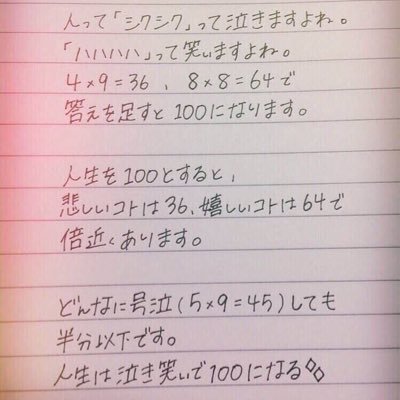 人って「シクシク」って泣きますよね。
「ハハハハ」って笑いますよね。
4×9=36 、 8×8=64で
答えを足すと100になります。
人生を100とすると、
悲しいコトは36、嬉しいコトは64で
倍近くあります。
どんなに号泣(5×9=45)しても
半分以下です。
人生は泣き笑いで100になる